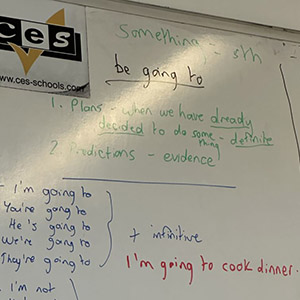 CES
www.ces-schools.com
Something - sth
be going to
1. Plans - when we have already
decided to do something - definite
2. Predictions - evidence
- I'm going to
You're going to
He's going to
We're going to
They're going to
+ infinitive
I'm going to cook dinner.
- I'm not